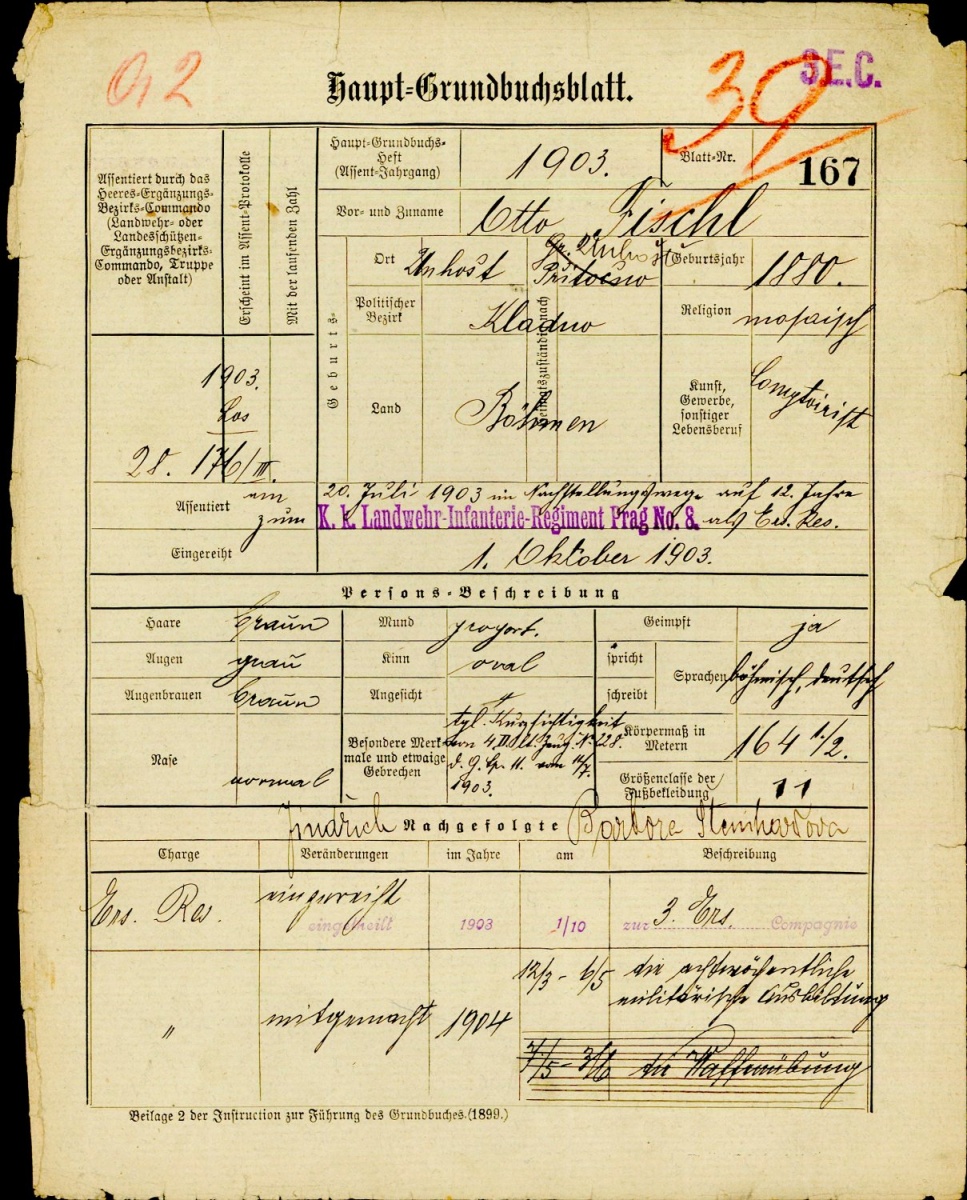 92
Haupt-Grundbuchsblatt.
39
3.E.C.
Assentiert durch das
Heeres-Ergänzungs-
Bezirks-Commando
(Landwehr- oder
Landesschützen-
Ergänzungsbezirks-
Commando, Truppe
oder Anstalt)
Erscheint im Assent-Protokolle
Mit der laufenden Zahl
Haupt-Grundbuchs-
Heft
(Assent-Jahrgang)
1903.
Blatt-Nr.
167
Vor- und Zuname
Otto Fischl
Geburts-
Ort
Unhošt
Heimatszuständig nach
Unhošť
Geburtsjahr
1880.
Politischer
Bezirk
Kladno
Religion
mosaisch
Land
Böhmen
Kunst,
Gewerbe,
sonstiger
Lebensberuf
Comptoirist
1903.
Los
28. 176/III.
Assentiert
am 20. Juli 1903 im Nachstellungswege auf 12 Jahre
zum K. k. Landwehr-Infanterie-Regiment Prag No. 8. als Ers. Res.
Eingereiht
1. Oktober 1903.
Persons-Beschreibung
Haare braun Mund proport. Geimpft ja
Augen grau Kinn oval spricht
schreibt
Sprachen böhmisch, deutsch
Augenbrauen braun Angesicht "
Nase normal
Besondere Merk-
male und etwaige
Gebrechen
Kurzsichtigkeit
1903.
Körpermaß in
Metern
164 1/2.
Größenclasse der
Fußbekleidung
11
Jindřich Nachgefolgte Barbora
Charge Veränderungen im Jahre am Beschreibung
Ers. Res. eingereiht
eingetheilt 1903 1/10 zur 3. Ers. Compagnie
12/3 - 6/5 die achtwöchentliche
militärische Ausbildung
" mitgemacht 1904
7/5 - 3/6 die Waffenübung
Beilage 2 der Instruction zur Führung des Grundbuches. (1899.)